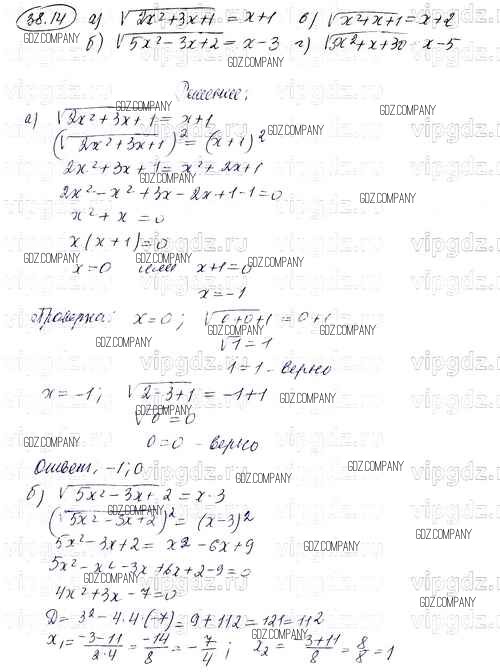 38.14 а) √2x²+3x+1 = x+1 в) √x²+x+1 = x+2
б) √5x²-3x+2 = x-3 г) √3x²+x+30 = x-5
Решение:
а) √2x²+3x+1 = x+1
(√2x²+3x+1)² = (x+1)²
2x²+3x+1 = x²+2x+1
2x²-x²+3x-2x+1-1=0
x²+x=0
x(x+1)=0
x=0 или x+1=0
x=-1
Проверка: x=0; √0+0+1 = 0+1
√1=1
1=1 - верно
x=-1; √2-3+1 = -1+1
√0=0
0=0 - верно
Ответ: -1; 0
б) √5x²-3x+2 = x-3
(√5x²-3x+2)² = (x-3)²
5x²-3x+2 = x²-6x+9
5x²-x²-3x+6x+2-9=0
4x²+3x-7=0
D=3²-4·4·(-7)=9+112=121=11²
x₁=-3-11/2·4=-14/8=-7/4; x₂=-3+11/8=8/8=1
GDZ.COMPANY
vipgdz.ru